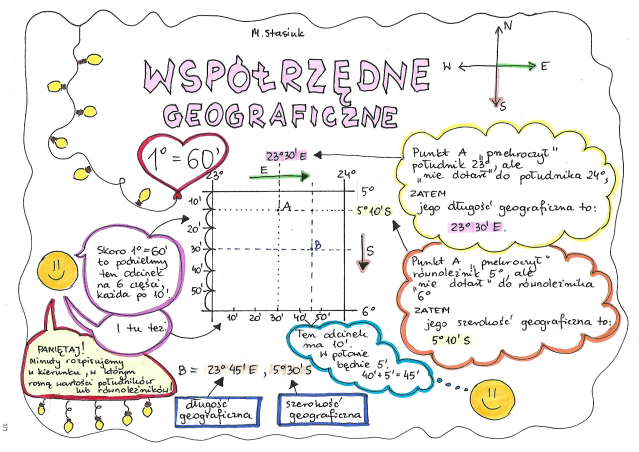 M. Stasiuk
WSPÓŁRZĘDNE
GEOGRAFICZNE
N
W E
S
1° = 60'
23°30' E
E
23° 24°
5°
10'
A
5°10' S
20'
30'
B
40'
S
50'
6°
10' 20' 30' 40' 50'
Punkt A „przekroczył"
południk 23°, ale
„nie dotarł" do południka 24°,
ZATEM
jego długość geograficzna to:
23° 30' E.
Skoro 1°=60'
to podzielmy
ten odcinek
na 6 części,
każda po 10'.
I tu też.
Punkt A „przekroczył"
równoleżnik 5°, ale
„nie dotarł" do równoleżnika
6°
ZATEM
jego szerokość geograficzna to:
5°10' S
PAMIĘTAJ!
Minuty rozpisujemy
w kierunku, w którym
rosną wartości południków
lub równoleżników!
Ten odcinek
ma 10'.
W połowie
będzie 5'.
40'+5' = 45'
B = 23° 45' E , 5°30' S
długość
geograficzna
szerokość
geograficzna